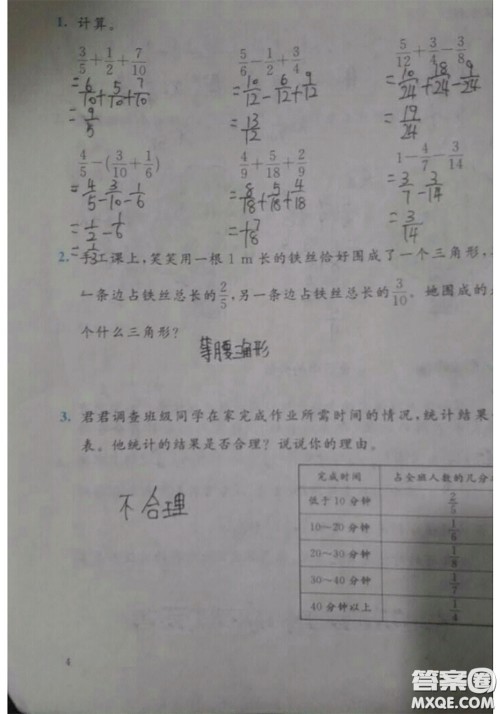 1. 计算。
3/5+1/2+7/10    5/6-1/2+3/4    5/12+3/4-3/8
=6/10+5/10+7/10    =10/12-6/12+9/12    =10/24+18/24-9/24
=9/5    =13/12    =19/24
4/5-(3/10+1/6)    4/9+5/18+2/9    1-4/7-3/14
=4/5-3/10-1/6    =8/18+5/18+4/18    =3/7-3/14
=1/2-1/6    =17/18    =3/14
=1/3
2. 手工课上，笑笑用一根 1 m 长的铁丝恰好围成了一个三角形，
一条边占铁丝总长的2/5，另一条边占铁丝总长的3/10。她围成的
个什么三角形？
等腰三角形
3. 君君调查班级同学在家完成作业所需时间的情况，统计结果
表。他统计的结果是否合理？说说你的理由。
不合理
完成时间    占全班人数的几分
低于 10 分钟    2/5
10～20 分钟    1/6
20～30 分钟    1/8
30～40 分钟    1/7
40 分钟以上    1/4
4
答案圈
MXQE.COM